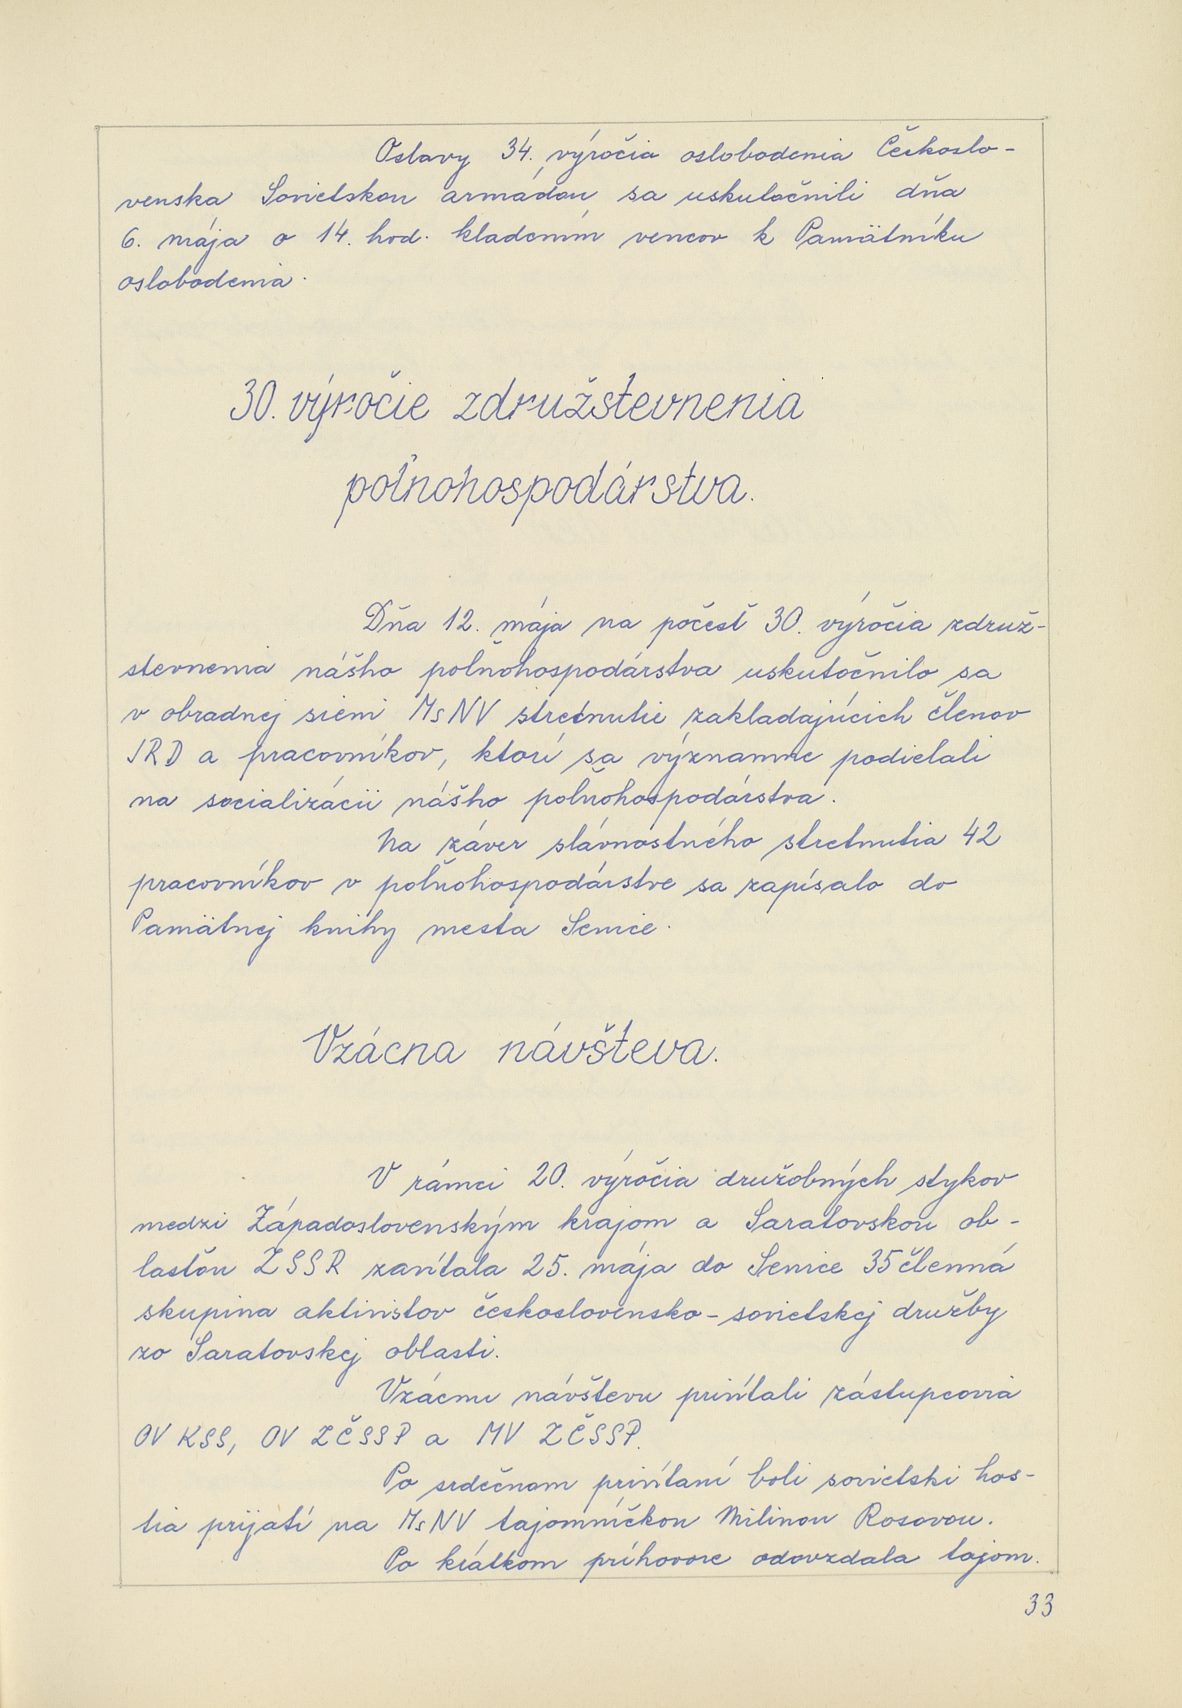 Oslavy 34. výročia oslobodenia Českoslo-
venska Sovietskou armádou sa uskutočnili dňa
6. mája o 14. hod. kladením vencov k Pamätníku
oslobodenia.
30. výročie združstevnenia
poľnohospodárstva.
Dňa 12. mája na počesť 30. výročia združ-
stevnenia nášho poľnohospodárstva uskutočnilo sa
v obradnej sieni MsNV stretnutie zakladajúcich členov
JRD a pracovníkov, ktorí sa významne podielali
na socializácii nášho poľnohospodárstva.
Na záver slávnostného stretnutia 42
pracovníkov v poľnohospodárstve sa zapísalo do
Pamätnej knihy mesta Senice.
Vzácna návšteva.
V rámci 20. výročia družobných stykov
medzi Západoslovenským krajom a Saratovskou ob-
lasťou ZSSR zavítala 25. mája do Senice 35členná
skupina aktivistov československo-sovietskej družby
zo Saratovskej oblasti.
Vzácnu návštevu privítali zástupcovia
OV KSS, OV ZČSSP a MV ZČSSP.
Po srdečnom privítaní boli sovietski hos-
tia prijatí na MsNV tajomníčkou Milinou Rosovou.
Po krátkom príhovore odovzdala tajom.
33